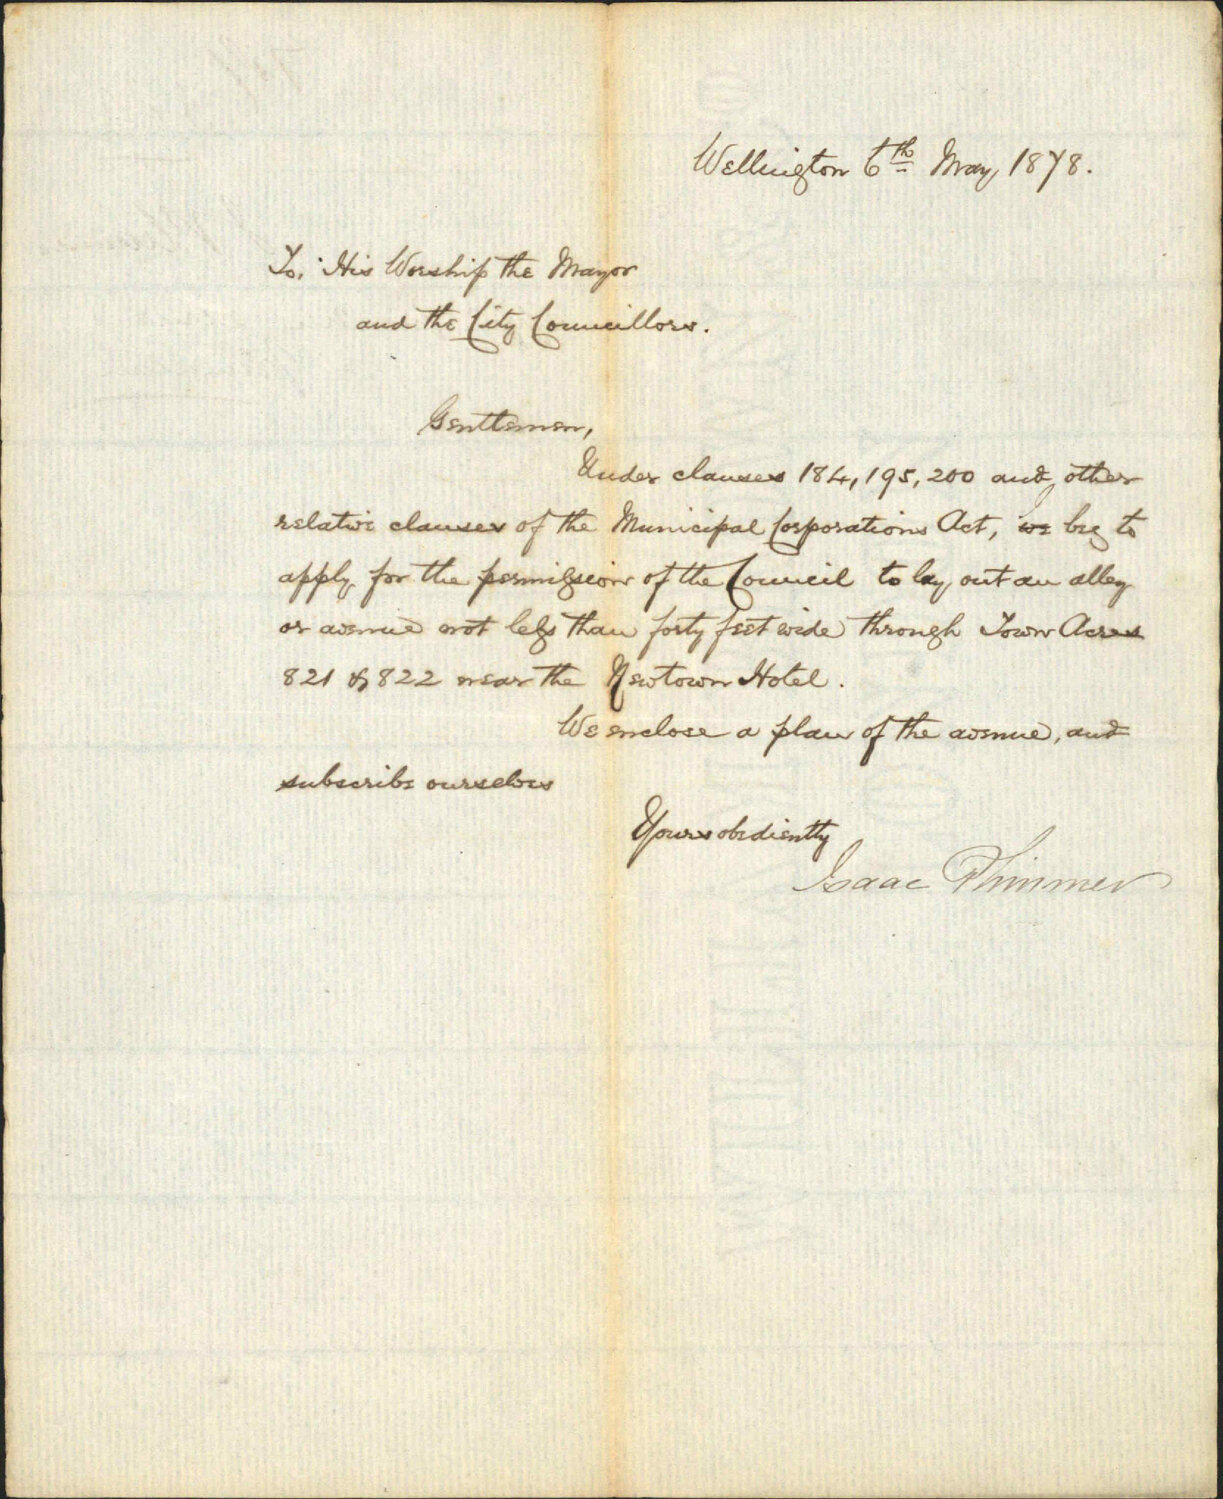 Wellington 6th May 1878.
To, His Worship the Mayor
and the City Councillors.
Gentlemen,
Under clauses 184, 195, 200 and other
relative clauses of the Municipal Corporations Act, I we beg to
apply for the permission of the Council to lay out an alley
or avenue not less than forty feet wide through Town Acres
821 & 822 near the Newtown Hotel.
We enclose a plan of the avenue, and
subscribe ourselves
Yours obediently
Isaac Plimmer